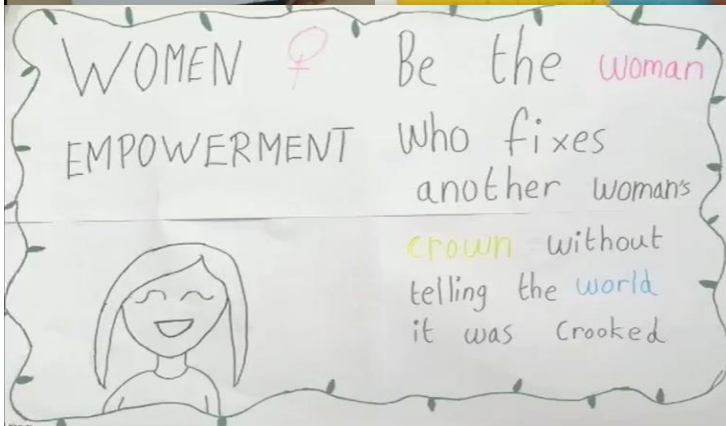 WOMEN
EMPOWERMENT
Be the woman
who fixes
another woman's
crown without
telling the world
it was crooked